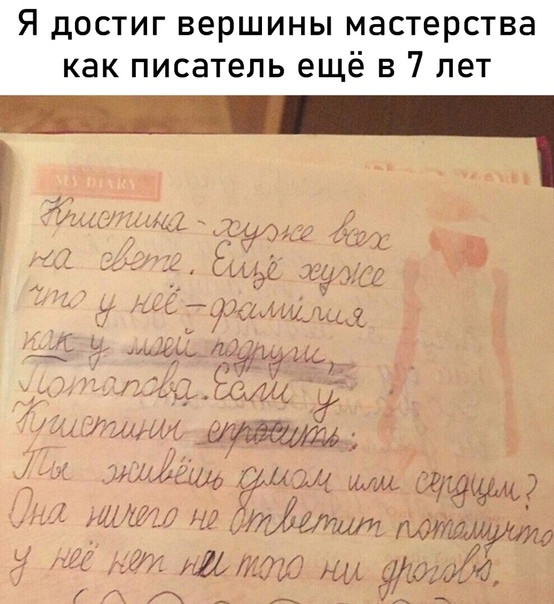 Я достиг вершины мастерства
как писатель ещё в 7 лет
MY DIARY
Кристина - хуже всех
на свете. Ещё хуже
что у неё – фамилия
как у моей подруги,
Потапова. Если у
Кристины спросить:
Ты живёшь умом или сердцем?
Она ничего не ответит потомучто
у неё нет ни того ни дрогова.